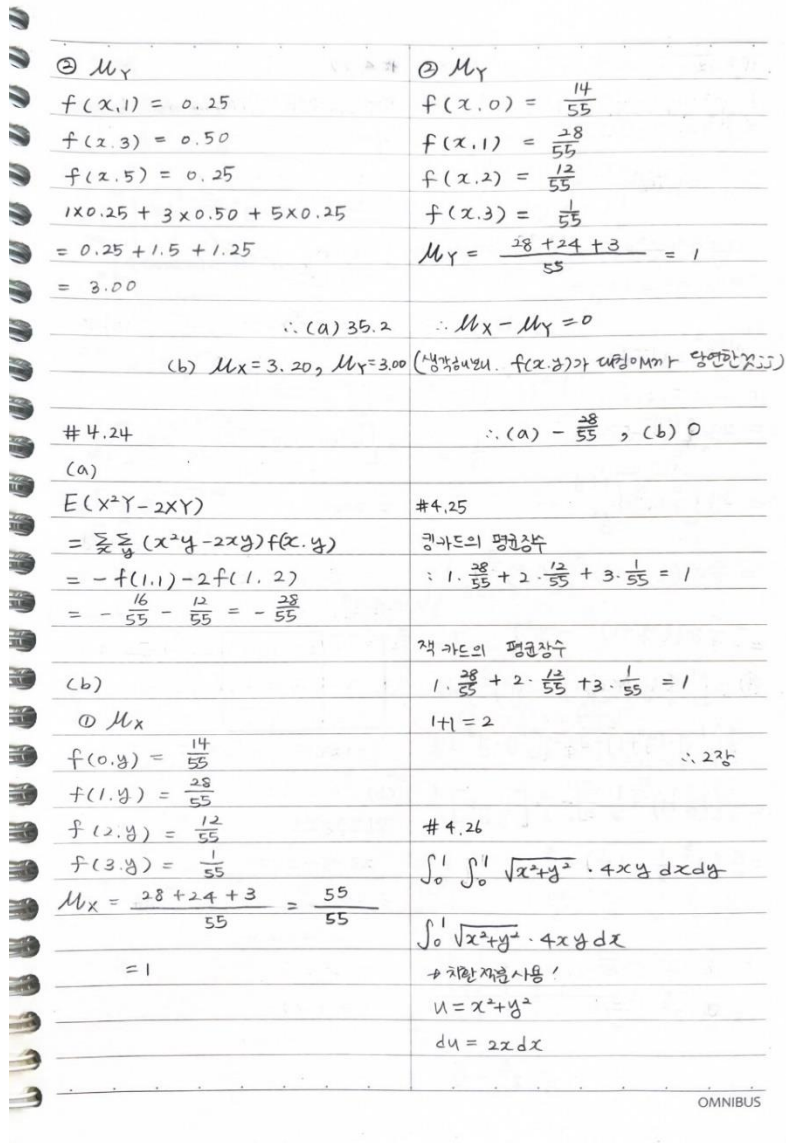 ② μY
f(x,1) = 0.25
f(x.3) = 0.50
f(x.5) = 0.25
1×0.25 + 3×0.50 + 5×0.25
= 0.25 + 1.5 + 1.25
= 3.00
∴ (a) 35.2
(b) μX = 3.20, μY = 3.00
#4.24
(a)
E(X²Y-2XY)
= ΣxΣy (x²y-2xy)f(x.y)
= -f(1.1)-2f(1.2)
= - 16/55 - 12/55 = - 28/55
(b)
① μX
f(0.y) = 14/55
f(1.y) = 28/55
f(2.y) = 12/55
f(3.y) = 1/55
μX = (28+24+3)/55 = 55/55
= 1
② μY
f(x.0) = 14/55
f(x.1) = 28/55
f(x.2) = 12/55
f(x.3) = 1/55
μY = (28+24+3)/55 = 1
∴ μX - μY = 0
(생각해보니. f(x.y)가 대칭이 당연한것;;)
∴ (a) - 28/55, (b) 0
#4.25
킹카드의 평균장수
: 1·28/55 + 2·12/55 + 3·1/55 = 1
잭 카드의 평균장수
1·28/55 + 2·12/55 + 3·1/55 = 1
1+1 = 2
∴ 2장
#4.26
∫₀¹ ∫₀¹ √(x²+y²) · 4xy dxdy
∫₀¹ √(x²+y²) · 4xy dx
→ 치환적분 사용!
u = x²+y²
du = 2xdx
OMNIBUS